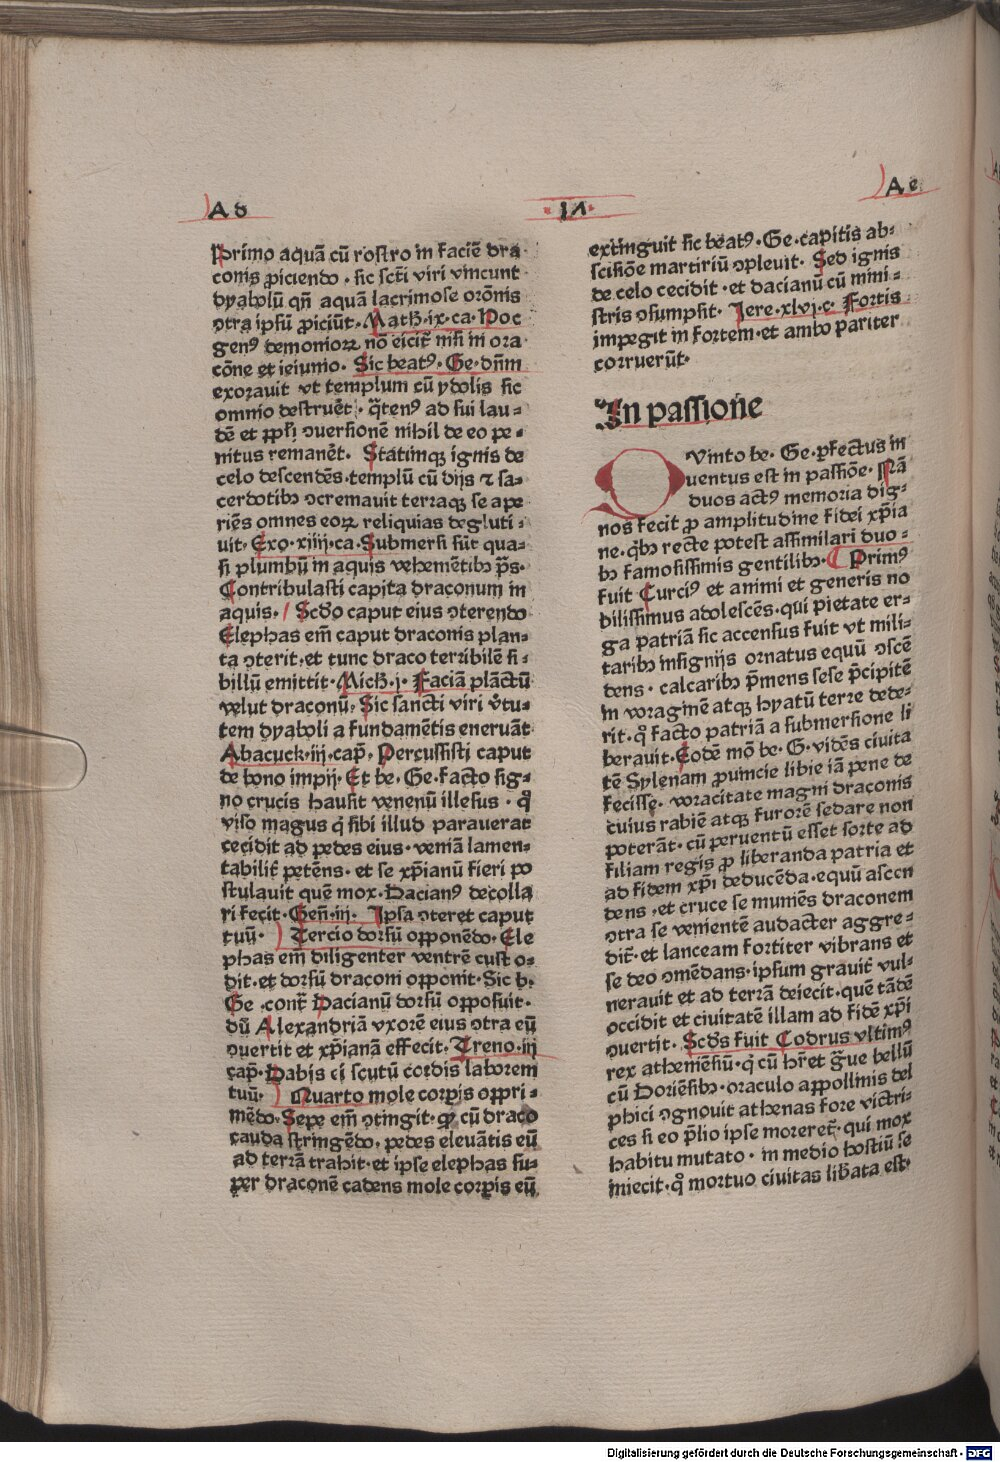 A d
· IΛ ·
A e
Primo aquā cū rostro in faciē dra
conis ꝓiciendo · sic scti viri vincunt
dyabolū qn̄ aquā lacrimose orōnis
ↄtra ipsū ꝓiciūt · Math·ix·ca· Hoc
genꝰ demonioꝝ nō eicit̄ nisi in ora
cōne et ieiunio. Sic beatꝰ · Ge·dn̄m
exorauit vt templum cū ydolis sic
omnio destruēt · q̄tenꝰ ad sui lau⸗
dē et ppl̄i ↄuersionē nihil de eo pe⸗
nitus remanēt. Statimqꝫ ignis de
celo descendēs·templū cū dijs ⁊ sa⸗
cerdotibꝫ ↄcremauit terraqꝫ se ape
riēs omnes eoꝝ reliquias degluti⸗
uit· Exo·xiiij·ca·Submersi sūt qua⸗
si plumbū in aquis vehemētibꝫ p̄s·
Contribulasti capita draconum in
aquis. Scd̄o caput eius ↄterendo
Elephas em̄ caput draconis plan⸗
ta ↄterit·et tunc draco terribilē si⸗
billū emittit·Mich̄·j· Faciā plāctū
velut draconū· Sic sancti viri v̄tu⸗
tem dyaboli a fundamētis eneruāt
Abacuck·iij·cap̄· Percussisti caput
de bono impij·Et be· Ge·facto sig⸗
no crucis hausit venenū illesus · qd̄
viso magus q̄ sibi illud parauerat
cecidit ad pedes eius·veniā lamen⸗
tabilit̄ petēns· et se xp̄ianū fieri po
stulauit quē mox·Dacianꝰ decolla
ri fecit·Gen̄·iij· Ipsa ↄteret caput
tuū· Tercio dorsū opponēdo·Ele
phas em̄ diligenter ventrē cust o⸗
dit·et dorsū draconi opponit·Sic b·
Ge·cont̄ Dacianū dorsū opposuit·
dū Alexandriā vxorē eius ↄtra eū
ↄuertit et xp̄ianā effecit·Treno·iij
cap̄·Dabis ei scutū cordis laborem
tuū· Quarto mole corꝑis oppri⸗
mēdo·Sepe em̄ ↄtingit·qꝙ cū draco
cauda stringēdo· pedes eleuātis eū
ad terrā trahit·et ipse elephas su⸗
per draconē cadens mole corꝑis eū
extinguit sic beatꝰ·Ge·capitis ab⸗
scisiōe martiriū ↄpleuit· Sed ignis
de celo cecidit ·et dacianū cū mini⸗
stris ↄsumpsit· Jere·xlvj·c· Fortis
impegit in fortem·et ambo pariter
corruerūt·
In passione
QVinto be· Ge·ꝑfectus in
uentus est in passiōe· Nā
duos actꝰ memoria dig⸗
nos fecit ꝓ amplitudine fidei xp̄ia
ne·qb̄ꝫ recte potest assimilari duo⸗
bꝫ famosissimis gentilibꝫ· Primꝰ
fuit Curciꝰ et animi et generis no
bilissimus adolescēs·qui pietate er⸗
ga patriā sic accensus fuit vt mili⸗
taribꝫ insignijs ornatus equū ↄscē
dens· calcaribꝫ p̄mens sese p̄cipitē
in voraginē atqꝫ hyatū terre dede⸗
rit·qͦ facto patriā a submersione li
berauit·Eodē mō be·G·vidēs ciuita
tē Sylenam ꝓuincie libie iā pene de
fecisse· voracitate magni draconis
cuius rabiē atqꝫ furorē sedare non
poterāt·cū peruentū esset sorte ad
filiam regis ꝓ liberanda patria et
ad fidem xp̄i deducēda·equū ascen
dens ·et cruce se muniēs draconem
ↄtra se venientē audacter aggre⸗
dit̄·et lanceam fortiter vibrans et
se deo ↄmēdans·ipsum grauit̄ vul⸗
nerauit et ad terrā deiecit·quē tādē
occidit et ciuitatē illam ad fidē xp̄i
ↄuertit· Scd̄s fuit Codrus vltimꝰ
rex atheniēsiū·q̄ cū hr̄et ḡue bellū
cū Doriēsibꝫ·oraculo appollinis del
phici ↄgnouit athenas fore victri⸗
ces si eo p̄lio ipse moreret̄· qui mox
habitu mutato· in medio hostiū se
iniecit·qͦ mortuo ciuitas lib̄ata est·
Digitalisierung gefördert durch die Deutsche Forschungsgemeinschaft - DFG